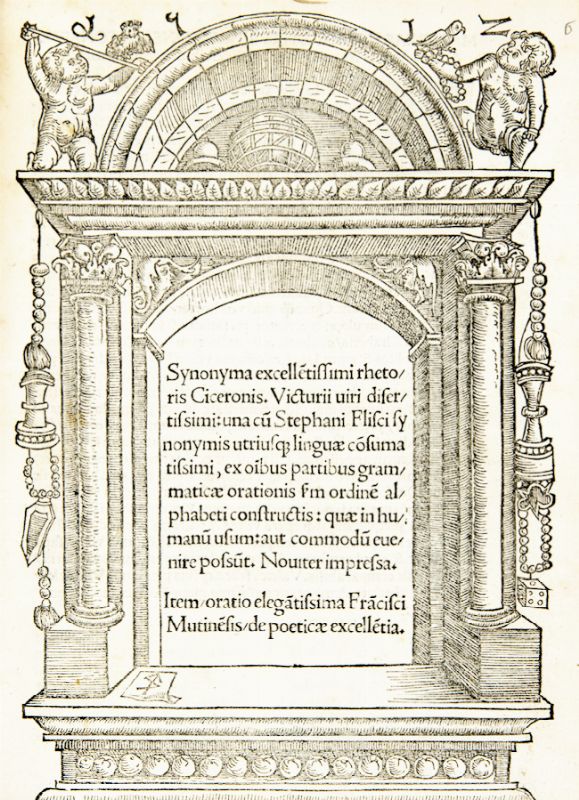 Synonyma excellētiſſimi rheto/
ris Ciceronis. Victurii uiri diſer/
tiſſimi: una cū Stephani Fliſci ſy
nonymis utriuſqꝫ linguæ cōſuma
tiſſimi, ex oībus partibus gram/
maticæ orationis ſm ordinē al/
phabeti conſtructis: quæ in hu/
manū uſum: aut commodū eue/
nire poſſūt. Nouiter impreſſa.
Item/oratio elegātiſſima Frāciſci
Mutinēſis/de poeticæ excellētia.